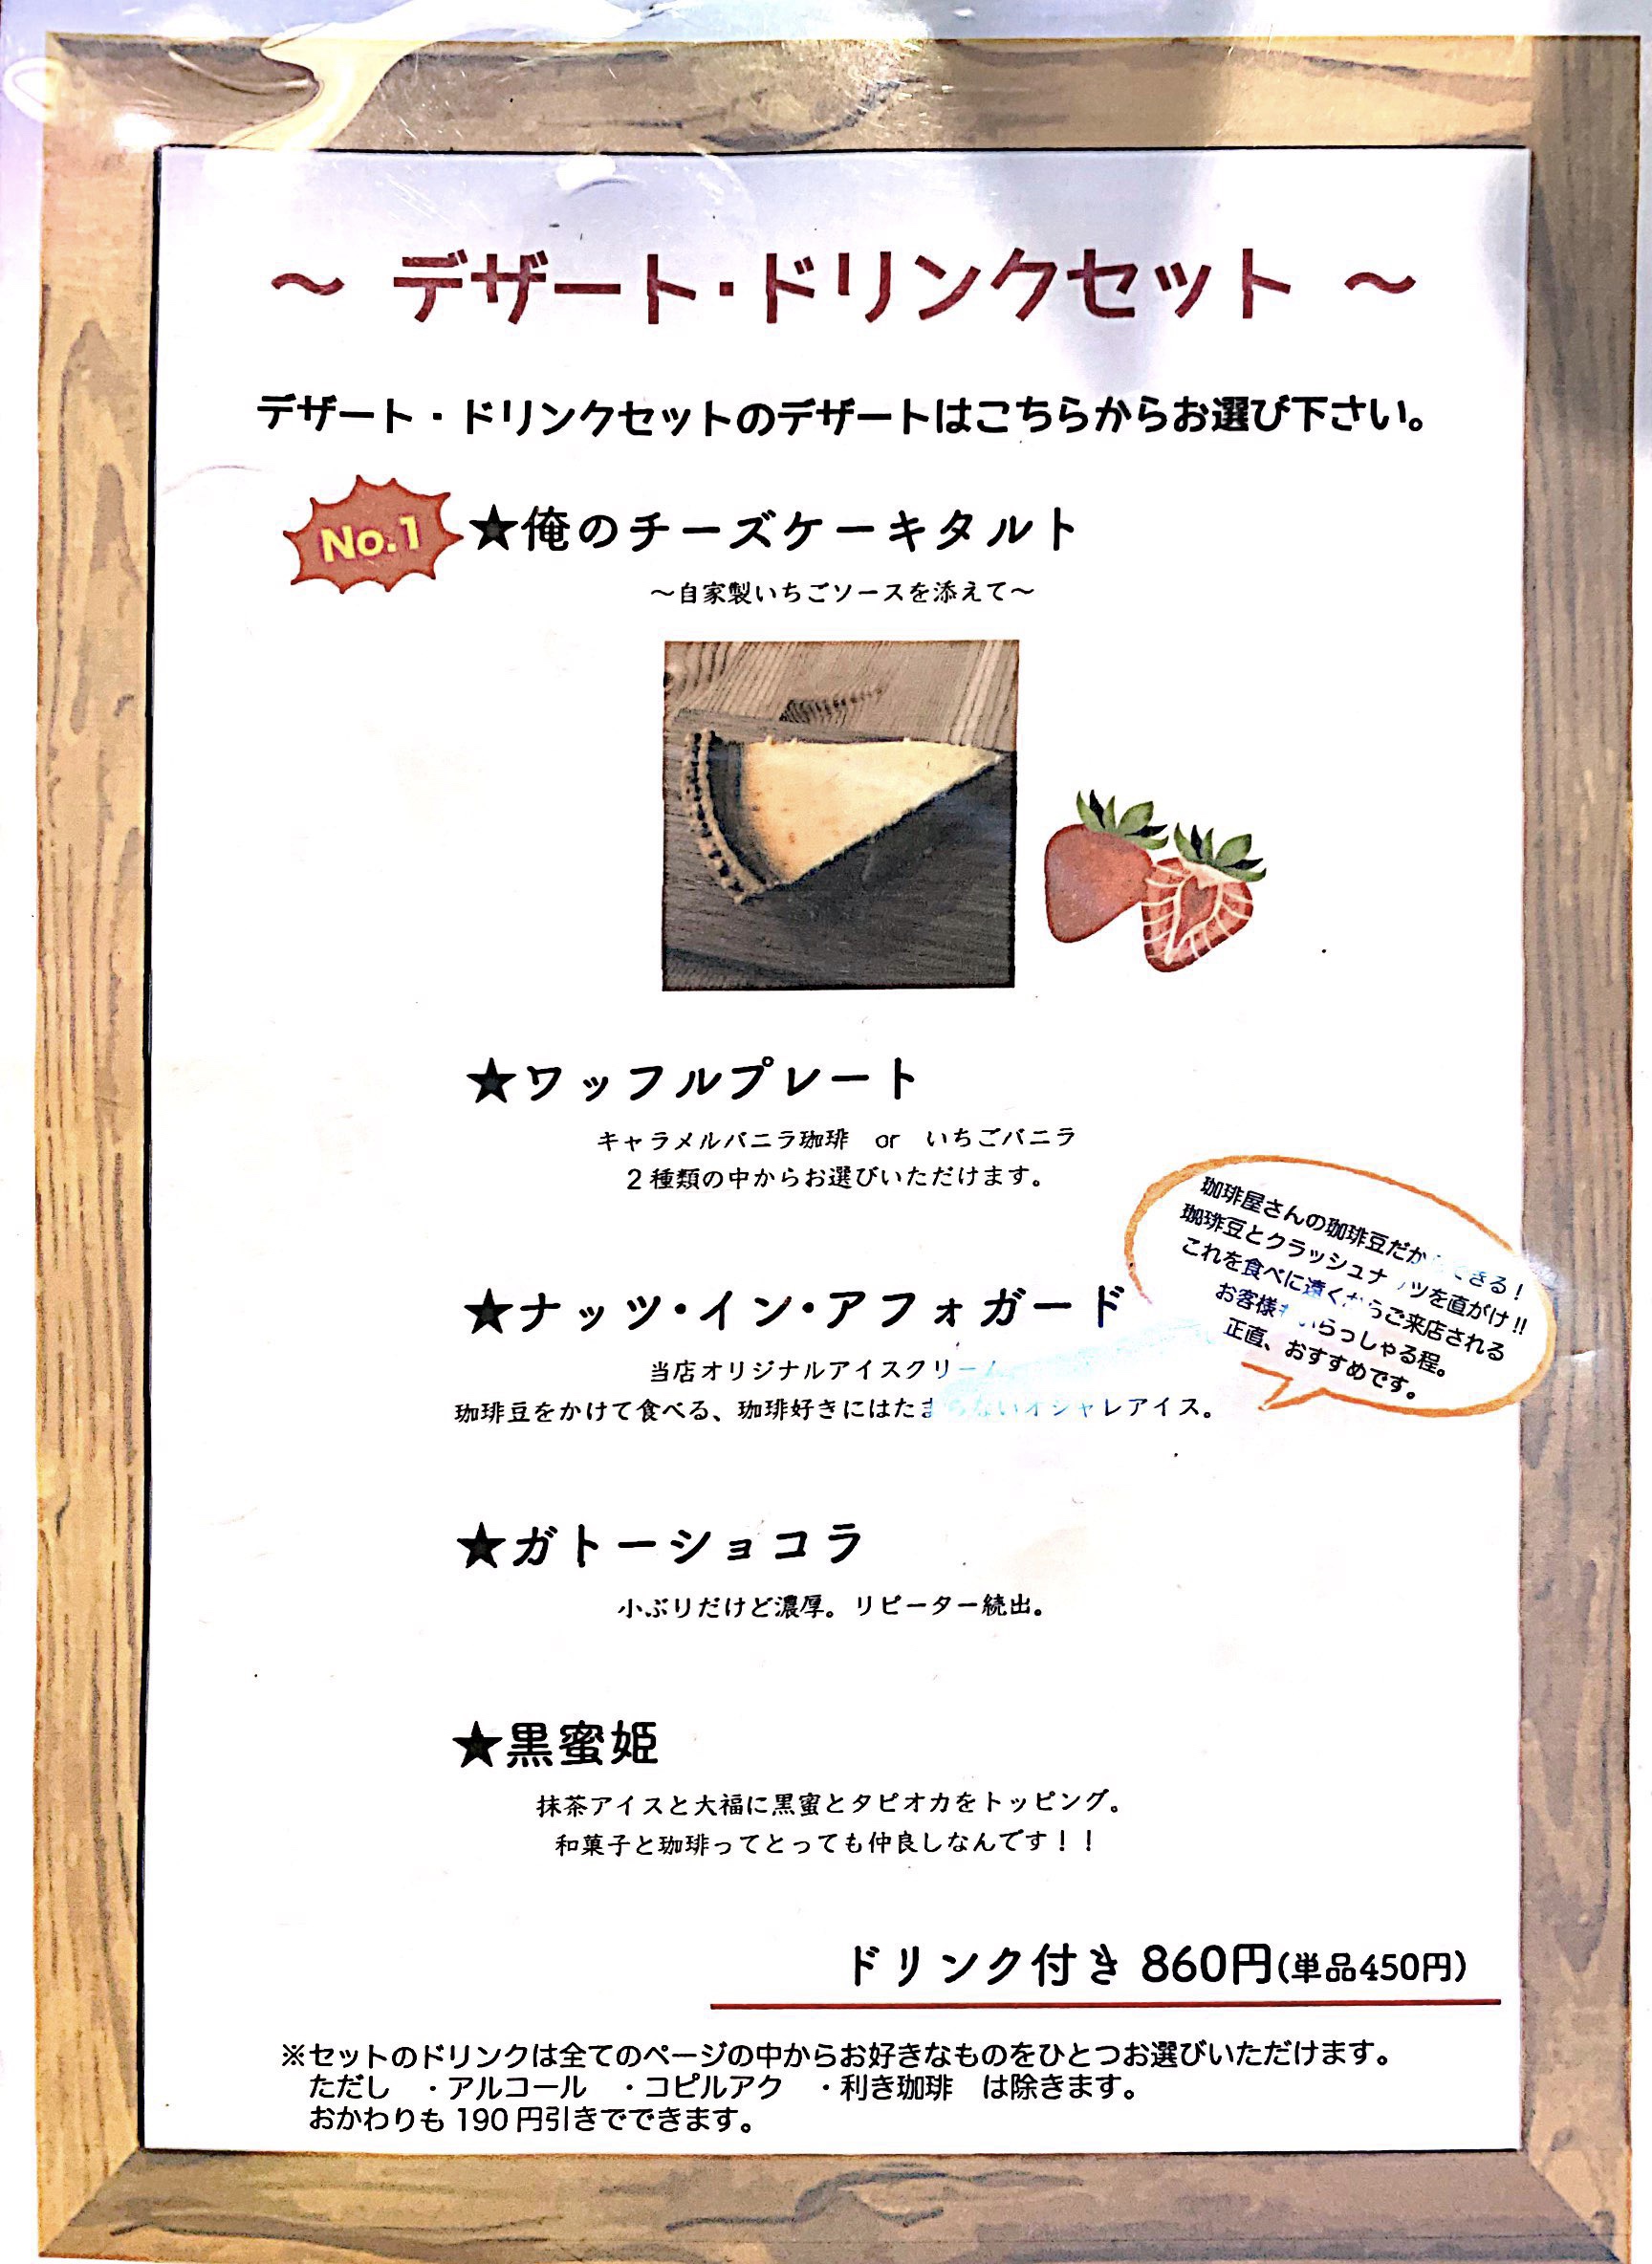 ～ デザート・ドリンクセット ～
デザート・ドリンクセットのデザートはこちらからお選び下さい。
No.1
★俺のチーズケーキタルト
～自家製いちごソースを添えて～
★ワッフルプレート
キャラメルバニラ珈琲 or いちごバニラ
2種類の中からお選びいただけます。
珈琲屋さんの珈琲豆だからできる！
珈琲豆とクラッシュナッツを直がけ!!
これを食べに遠くからご来店される
お客様もいらっしゃる程。
正直、おすすめです。
★ナッツ・イン・アフォガード
当店オリジナルアイスクリーム
珈琲豆をかけて食べる、珈琲好きにはたまらないオシャレアイス。
★ガトーショコラ
小ぶりだけど濃厚。リピーター続出。
★黒蜜姫
抹茶アイスと大福に黒蜜とタピオカをトッピング。
和菓子と珈琲ってとっても仲良しなんです！！
ドリンク付き 860円(単品450円)
※セットのドリンクは全てのページの中からお好きなものをひとつお選びいただけます。
ただし ・アルコール ・コピルアク ・利き珈琲 は除きます。
おかわりも 190 円引きでできます。